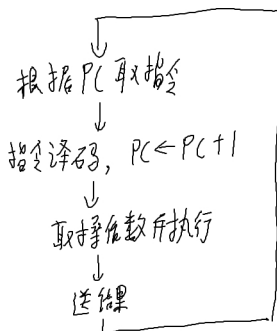 根据PC取指令
指令译码, PC←PC+1
取操作数并执行
送结果